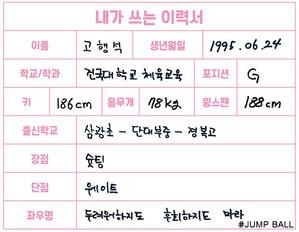 내가 쓰는 이력서
이름 고행석 생년월일 1995.06.24
학교/학과 건국대학교 체육교육 포지션 G
키 186cm 몸무게 78kg 윙스팬 188cm
출신학교 삼광초 - 단대부중 - 경복고
장점 슛팅
단점 웨이트
좌우명 두려워하지도 후회하지도 마라
#JUMP BALL